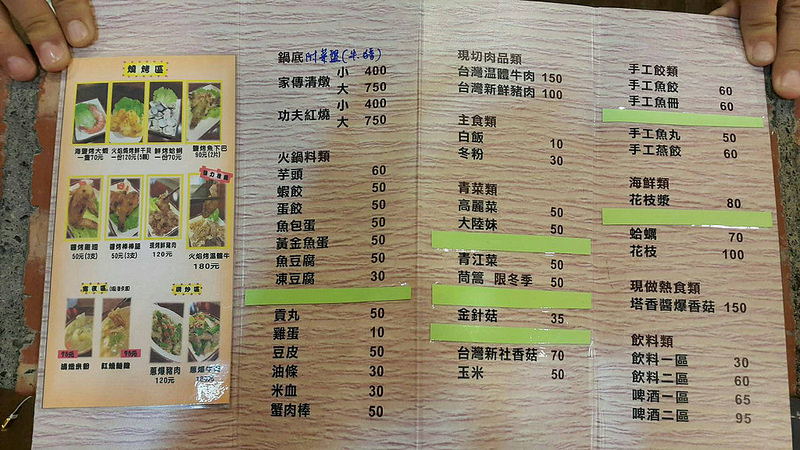 燒烤區
海鹽烤大蝦
一隻70元
火焰燒烤鮮干貝
一份120元(5顆)
鮮烤蛤蜊
一份70元
鹽烤魚下巴
90元(2片)
強力推薦
鹽烤雞翅
50元(3支)
鹽烤棒棒腿
50元(3支)
現烤鮮豬肉
120元
火焰烤溫體牛
180元
宵夜區
快炒區
清燉米粉
紅燒麵線
蔥爆豬肉
120元
蔥爆牛肉
鍋底 附菜盤(牛.豬)
家傳清燉 小 400
大 750
功夫紅燒 小 400
大 750
火鍋料類
芋頭 60
蝦餃 50
蛋餃 50
魚包蛋 50
黃金魚蛋 50
魚豆腐 50
凍豆腐 30
貢丸 50
雞蛋 10
豆皮 50
油條 30
米血 30
蟹肉棒 50
現切肉品類
台灣溫體牛肉 150
台灣新鮮豬肉 100
主食類
白飯 10
冬粉 30
青菜類
高麗菜 50
大陸妹 50
青江菜 50
茼蒿 限冬季 50
金針菇 35
台灣新社香菇 70
玉米 50
手工餃類
手工魚餃 60
手工魚冊 60
手工魚丸 50
手工燕餃 60
海鮮類
花枝漿 80
蛤蠣 70
花枝 100
現做熱食類
塔香醬爆香菇 150
飲料類
飲料一區 30
飲料二區 60
啤酒一區 65
啤酒二區 95